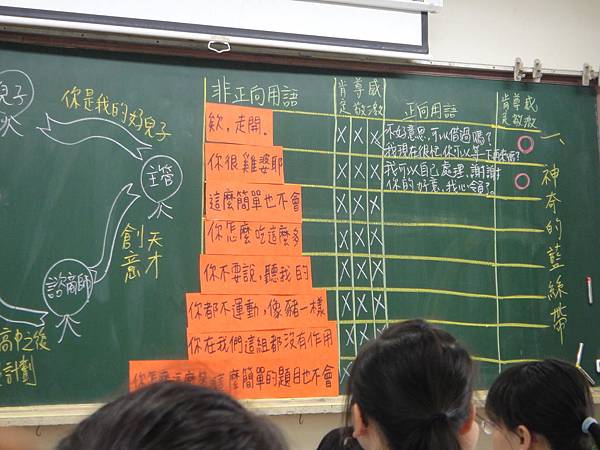 兒子
你是我的好兒子
主管
創意
天才
諮商師
高中之後
計劃
非正向用語
肯定
尊敬
感激
正向用語
肯定
尊敬
感激
欸,走開.
你很雞婆耶
這麼簡單也不會
你怎麼吃這麼多
你不要說,聽我的
你都不運動,像豬一樣
你在我們這組都沒有作用
這麼簡單的題目也不會
X X X
X X X
X X X
X X X
X X X
X X X
X X X
不好意思,可以借過嗎?
我現在很忙,你可以等一下再來嗎?
我可以自己處理,謝謝
你的好意,我心領了。
一、神奇的藍絲帶